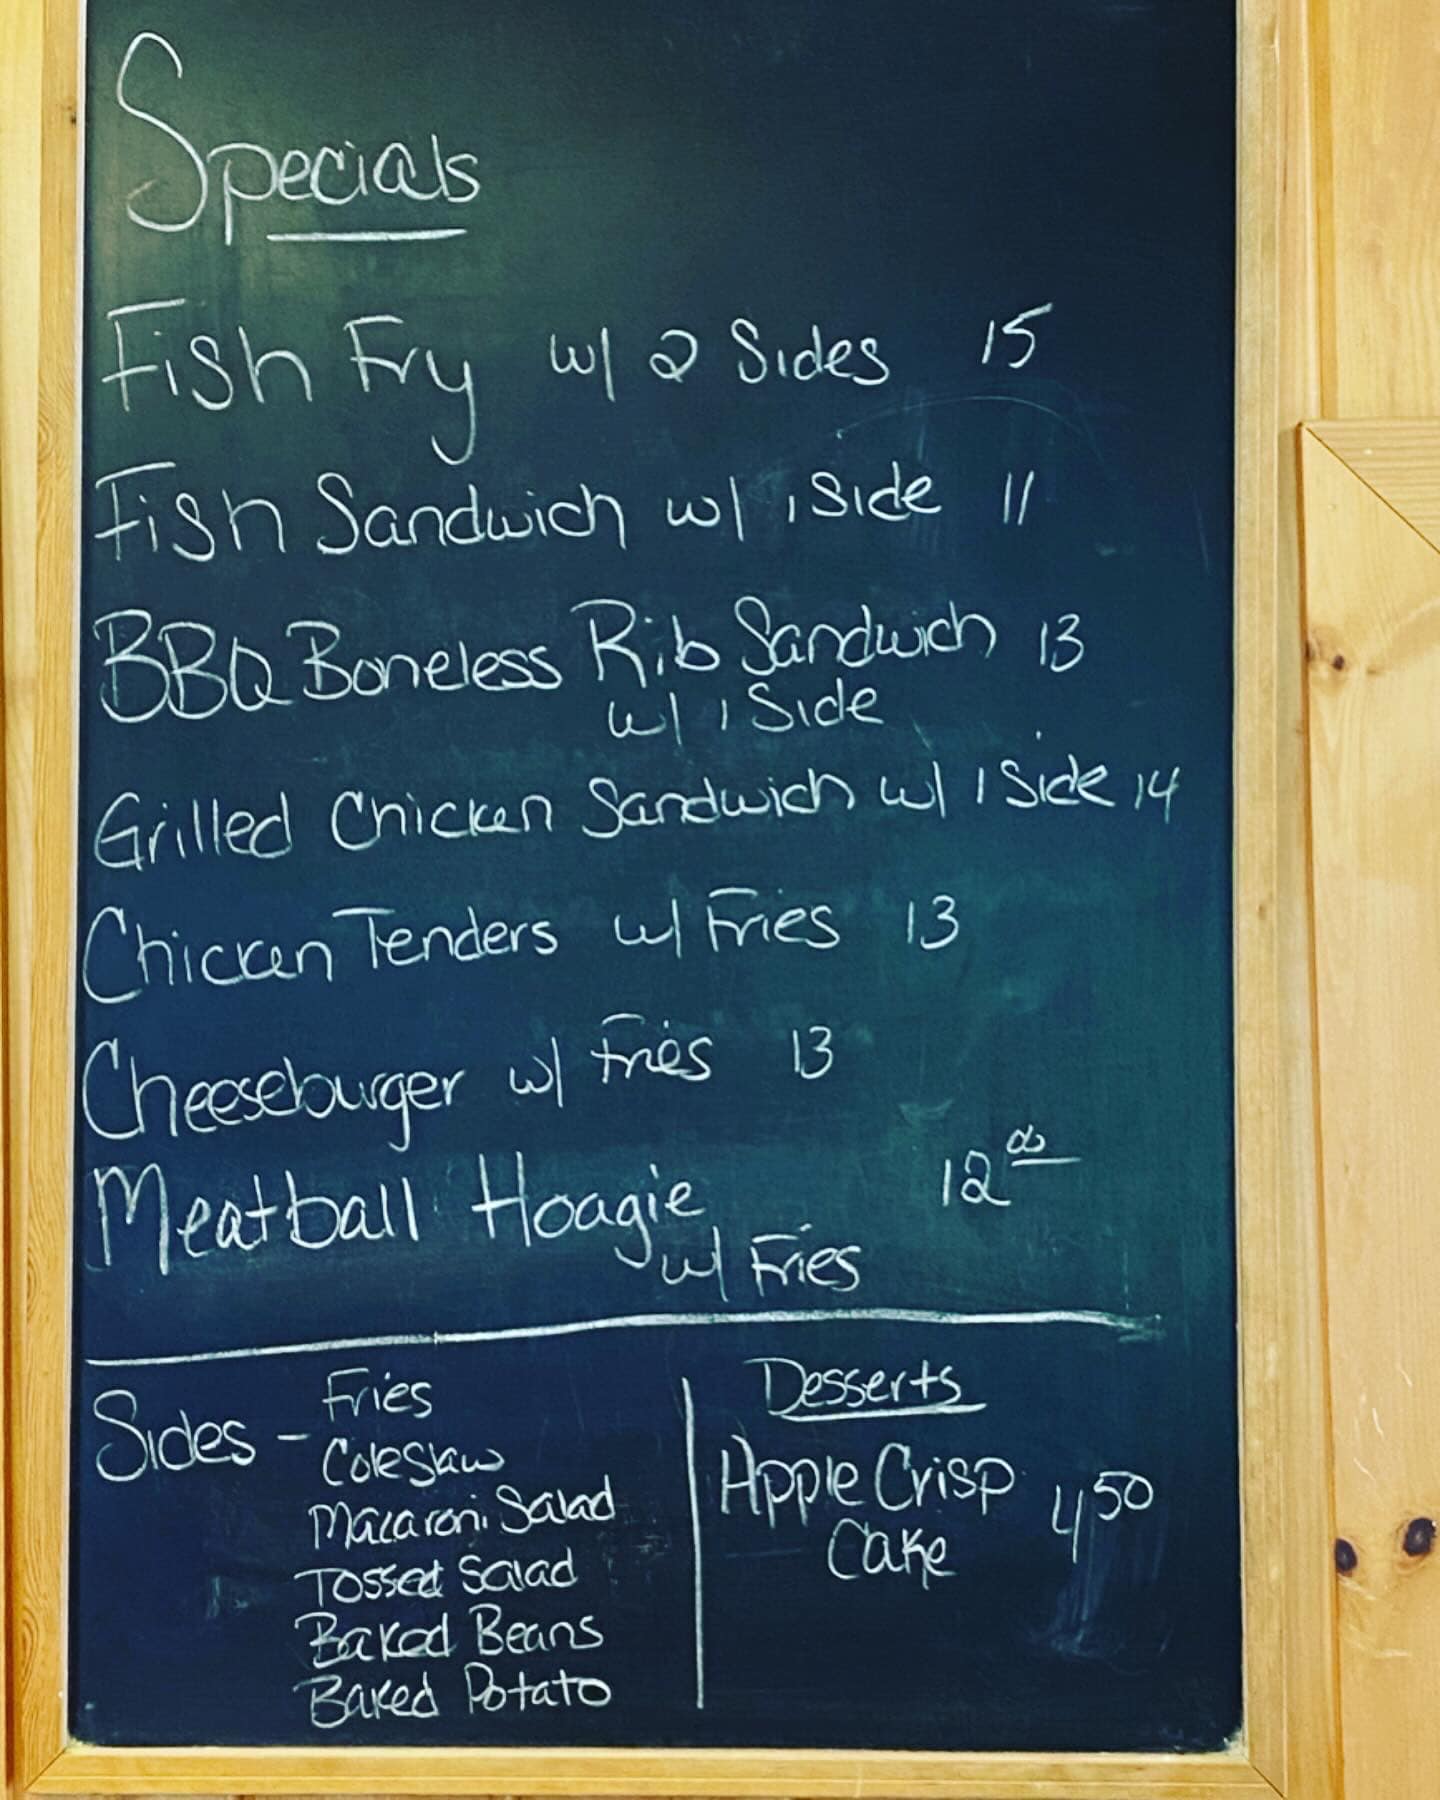 Specials
Fish Fry w/ 2 Sides 15
Fish Sandwich w/ 1 Side 11
BBQ Boneless Rib Sandwich 13
w/ 1 Side
Grilled Chicken Sandwich w/ 1 Side 14
Chicken Tenders w/ Fries 13
Cheeseburger w/ Fries 13
Meatball Hoagie 12 00
w/ Fries
Sides - Fries
Coleslaw
Macaroni Salad
Tossed Salad
Baked Beans
Baked Potato
Desserts
Apple Crisp 4 50
Cake